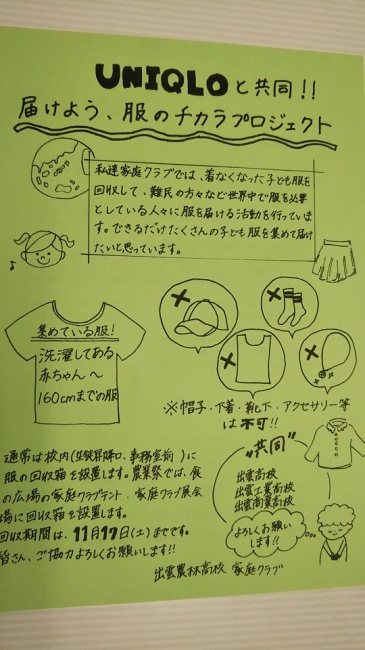 UNIQLOと共同!!
届けよう、服のチカラプロジェクト
私達家庭クラブでは、着なくなった子ども服を
回収して、難民の方々など世界中で服を必要
としている人々に服を届ける活動を行っていま
す。できるだけたくさんの子ども服を集めて届け
たいと思っています。
集めている服!
洗濯してある
赤ちゃん～
160cmまでの服
※帽子・下着・靴下・アクセサリー等
は不可!!
通常は校内(生徒昇降口、事務室前)に
服の回収箱を設置します。農業祭では、食
の広場の家庭クラブテント・家庭クラブ展会
場に回収箱を設置します。
回収期間は、11月17日(土)までです。
皆さん、ご協力よろしくお願いします!!
"共同"
出雲高校
出雲工業高校
出雲商業高校
よろしくお願い
します!!
出雲農林高校 家庭クラブ